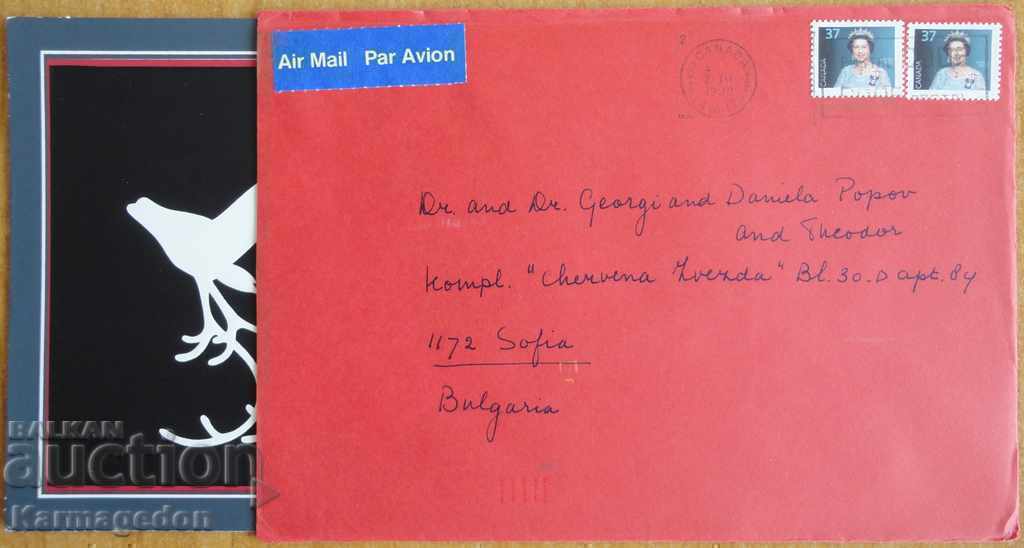 Air Mail Par Avion
CANADA
37
CANADA
37
CANADA
Dr. and Dr. Georgi and Daniela Popov
and Theodor
Kompl. "Chervena Zvezda" Bl. 30. D apt. 84
1172 Sofia
Bulgaria
BALKAN
auction
Karmagedon